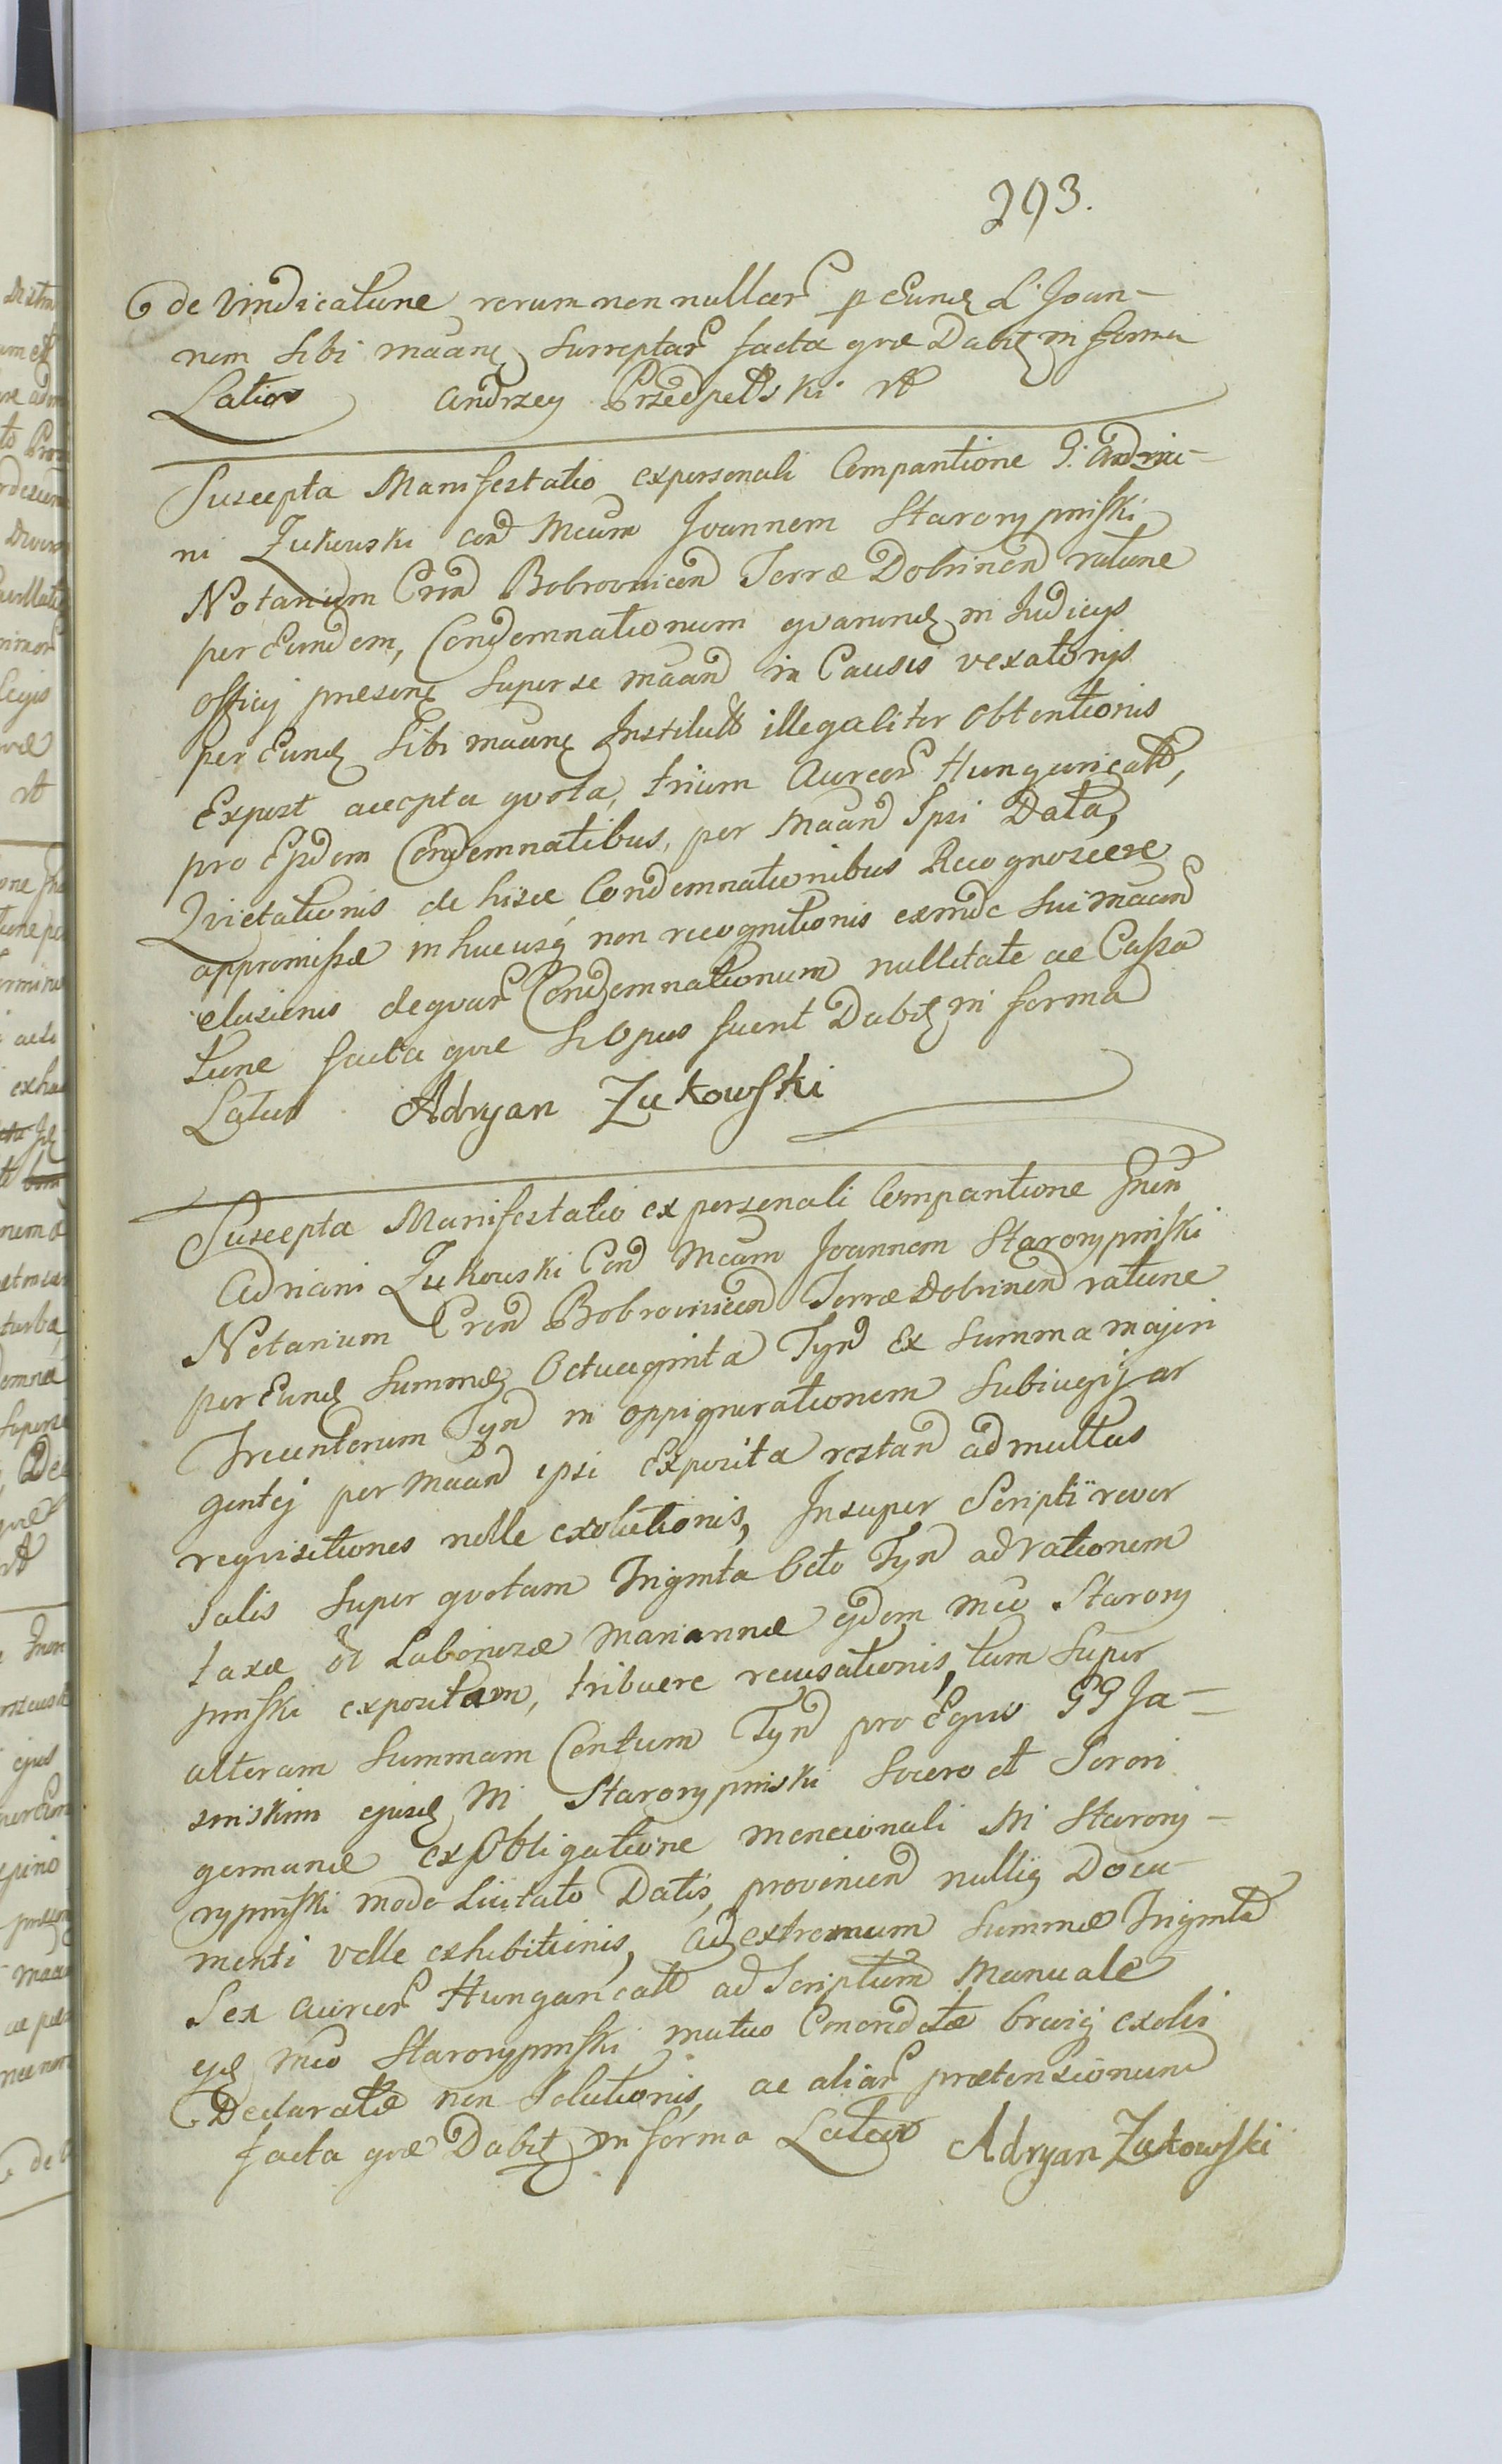 293.
de Vindicatione rerum non nullar p Eund L. Joan-
nem sibi maane surreptar facta qvae Dabit in forma
Latior Andrzey Przedpełski
Suscepta Manifestatio expersonali Comparitione G. Adria-
ni Zukowski con Mcum Joannem Starorypinski
Notarium Cren Bobrovnicen Terrae Dobrinen ratione
per Eundem, Condemnationum qvarund in Judicijs
officij praesen super se maan in Causis vexatorijs
per Eund sibi maane Institutt illegaliter obtentionis
Expost accepta qvota, trium Aureor Hungaricatt,
pro Ejsdem Condemnatibus, per Maan Ipsi Data,
Qvietationis de hisce Condemnationibus Recognoscere
appromissae in hucusq non recognitionis exinde sui maan
elusionis deqvar Condemnationum nullitate ac Cassa
tione facta qvae si Opus fuerit Dabit in forma
Latiori Adryan Zukowski
Suscepta Manifestatio ex personali Comparitione Gnen
Adriani Zukowski Con Mcum Joannem Starorypinski
Notarium Cren Bobrovnicen Terrae Dobrinen ratione
per Eund Summae Octuaginta Tyn Ex summa majori
Trecentorum Tyn in oppignerationem Subiugij ar
gentej per Maan ipsi Exposita restan ad multas
reqvisitiones nolle exolutionis, Insuper Scripti rever
salis super qvotam Triginta Octo Tyn ad rationem
taxae Laboriosae Mariannae ejdem Mco Starory
pinski expositam, tribuere recusationis, tum super
alteram summam Centum Tyn pro Eqvo GG Ja-
sinskim ejusd M Starorypinski Socero et Sorori
germanae ex Obligatione mencionali M Starory-
rypinski modo Licitato Datis, provenien nulliq Docu-
menti velle exhibitionis, ad extremum Summae Triginta
Sex aureor Hungaricatt ad Scriptum Manuale
ejd Mco Starorypinski mutuo Concredatae brevij exolvi
Declaratae non Solutionis, ac aliar praetensionum
facta qvae Dabit in forma Latiori Adryan Zukowski